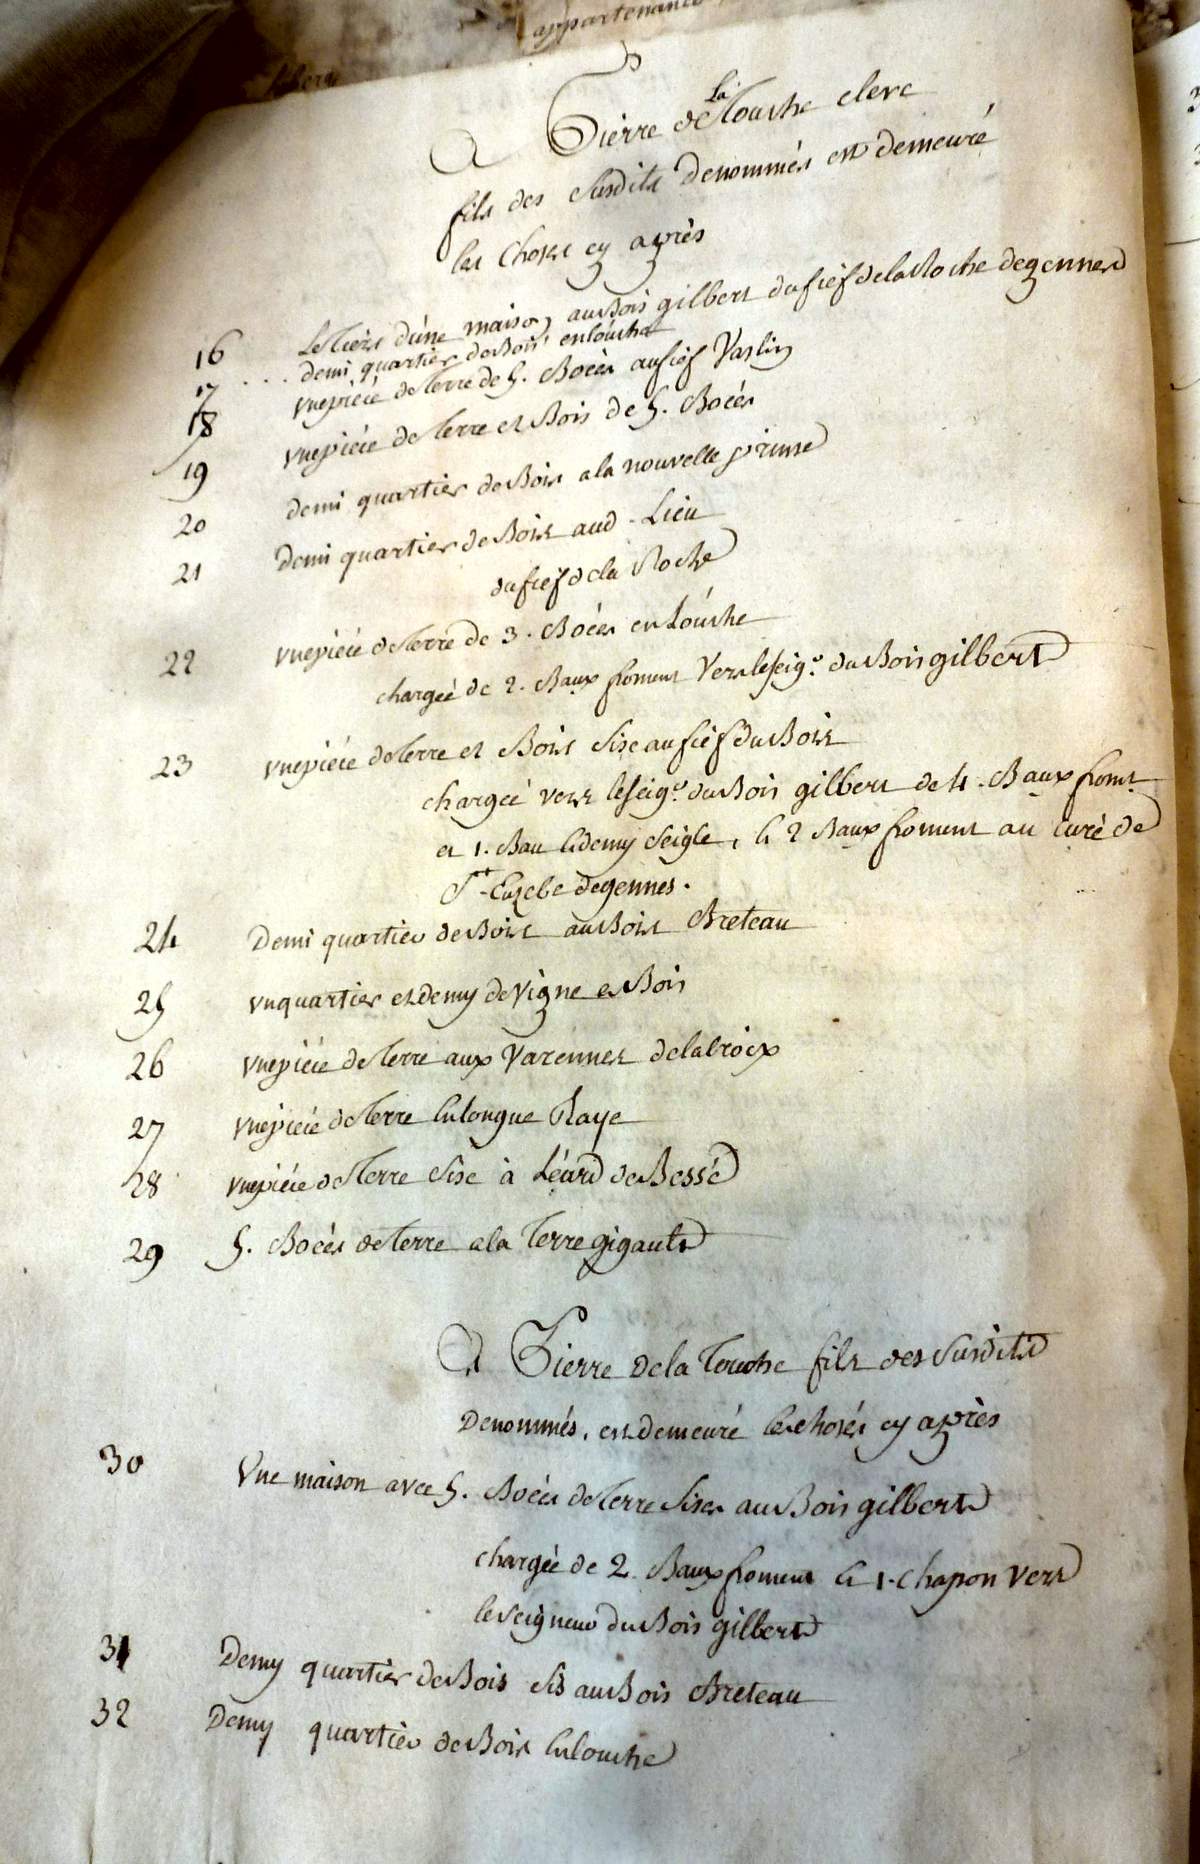 appartenance
A Pierre de La Touche clerc
fils des susdits denommés est demeuré
les choses cy après
16 Le Tiers d'une maison au Bois gilbert du fief de la Roche de gennes
17 ... demi quartier de Bois en louche
18 une piéce de Terre de 5. Boées au fief Vaslin
19 une piéce de Terre et Bois de 5. Boées
20 demi quartier de Bois a la nouvelle prinse
21 Demi quartier de Bois aud. Lieu
du fief de la Roche
22 une piéce de Terre de 3. Boées en Louche
chargée de 2. Baux froment Vers le seigr. du Bois gilbert
23 une piéce de Terre et Bois sise au fief du Bois
chargée vers le seigr. du Bois gilbert de 4. Baux fromt.
et 1. Bau & demy seigle, & 2 Baux froment au curé de
St. Eusebe de gennes.
24 Demi quartier de Bois au Bois Breteau
25 un quartier et demy de vigne et Bois
26 une piéce de Terre aux Varennes de la Croix
27 une piéce de Terre en longue Raye
28 une piéce de Terre sise à Léard de Bessé
29 5. Boées de Terre a la Terre gigault
A Pierre de la Touche fils des susdits
Denommés, est demeuré les choses cy après
30 Une maison avec 5. Boées de Terre sises au Bois gilbert
chargée de 2. Baux froment & 1. chapon Vers
le seigneur du Bois gilbert
31 Demy quartier de Bois sis au Bois Breteau
32 Demy quartier de Bois en louche